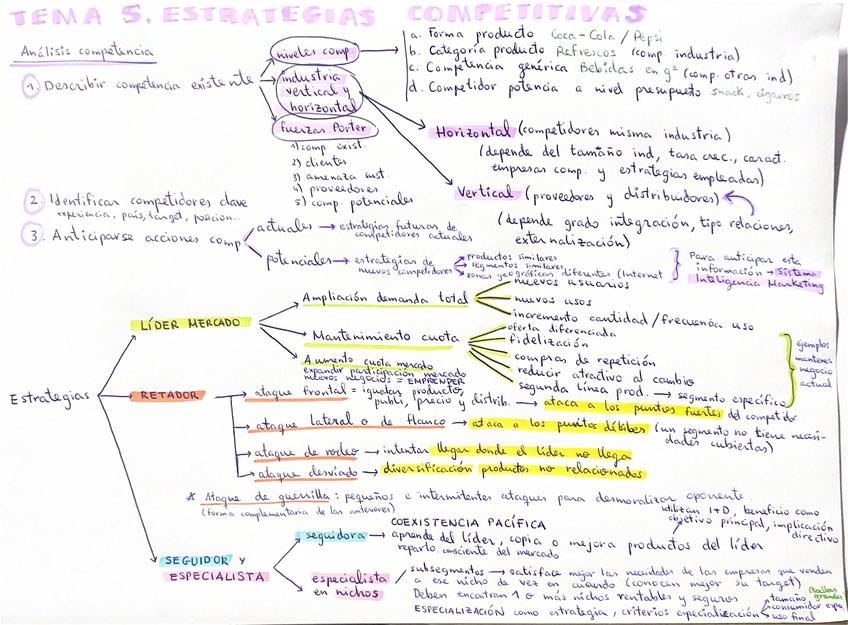 TEMA 5. ESTRATEGIAS COMPETITIVAS
Análisis competencia
1. Describir competencia existente
niveles comp.
a. Forma producto Coca-Cola / Pepsi
b. Categoría producto Refrescos (comp industria)
c. Competencia genérica Bebidas en gral (comp. otras ind)
d. Competidor potencia a nivel presupuesto snack, cigarros
industria
vertical y
horizontal
Horizontal (competidores misma industria)
(depende del tamaño ind, tasa crec., caract.
empresas comp. y estrategias empleadas)
Vertical (proveedores y distribuidores)
(depende grado integración, tipo relaciones,
externalización)
fuerzas Porter
1) comp. exist.
2) clientes
3) amenaza sust.
4) proveedores
5) comp. potenciales
2. Identificar competidores clave
experiencia, país, target, posicion...
3. Anticiparse acciones comp
actuales → estrategias futuras de
competidores actuales
potenciales → estrategias de
nuevos competidores
productos similares
segmentos similares
zonas geográficas diferentes (Internet
Para anticipar esta
información → Sistema
Inteligencia Marketing
Estrategias
LÍDER MERCADO
Ampliación demanda total
nuevos usuarios
nuevos usos
incremento cantidad/frecuencia uso
Mantenimiento cuota
oferta diferenciada
fidelización
compras de repetición
reducir atractivo al cambio
segunda línea prod. → segmento específico
ejemplos
mantener
negocio
actual
Aumento cuota mercado
expandir participación mercado
nuevos negocios = EMPRENDER
RETADOR
ataque frontal = igualar productos,
publi, precio y distrib. → ataca a los puntos fuertes del competido
ataque lateral o de flanco → ataca a los puntos débiles (un segmento no tiene necesi-
dades cubiertas)
ataque de rodeo → intentar llegar donde el líder no llega
ataque desviado → diversificación productos no relacionados
* Ataque de guerrilla: pequeños e intermitentes ataques para desmoralizar oponente.
(forma complementaria de las anteriores)
SEGUIDOR Y
ESPECIALISTA
seguidora
COEXISTENCIA PACÍFICA
aprende del líder, copia o mejora productos del líder
reparto consciente del mercado
utilizan I+D, beneficio como
objetivo principal, implicación
directivo
especialista
en nichos
subsegmentos → satisface mejor las necesidades de las empresas que venden
a ese nicho de vez en cuando (conocen mejor su target)
Deben encontrar 1 o más nichos rentables y seguros
ESPECIALIZACIÓN como estrategia, criterios especialización
tamaño (tallas
grandes)
consumidor espe
uso final